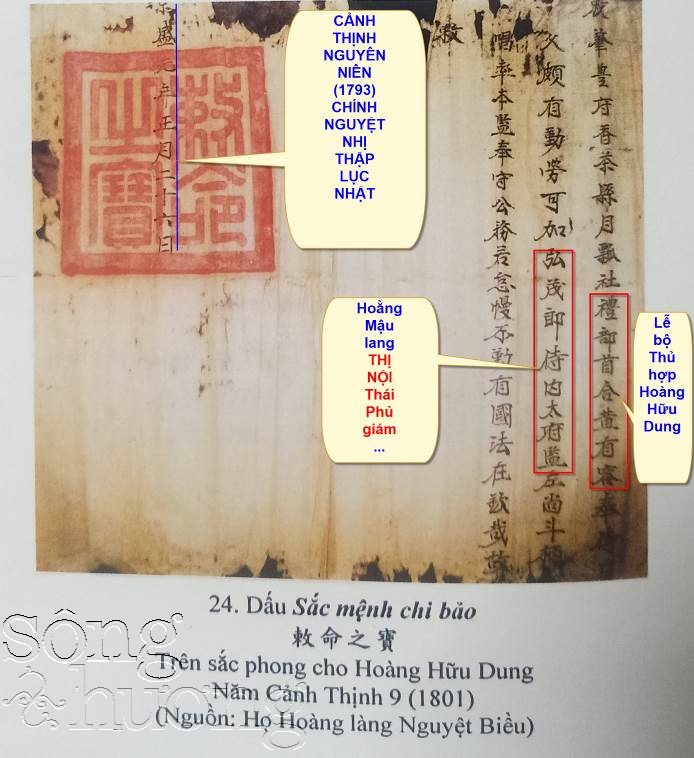 肇豐府香茶縣月瓢社禮部首合黃有容奉侍日
久頗有勤勞可加弘茂郎侍內太府監左尚斗
唱率本監奉守公務若怠慢不勤有國法在欽哉故
敕
景盛元年正月二十六日
敕命之寶
CẢNH
THỊNH
NGUYÊN
NIÊN
(1793)
CHÍNH
NGUYỆT
NHỊ
THẬP
LỤC
NHẬT
Hoằng
Mậu
lang
THỊ
NỘI
Thái
Phủ
giám
...
Lễ
bộ
Thủ
hợp
Hoàng
Hữu
Dung
24. Dấu Sắc mệnh chi bảo
敕命之寶
Trên sắc phong cho Hoàng Hữu Dung
Năm Cảnh Thịnh 9 (1801)
(Nguồn: Họ Hoàng làng Nguyệt Biều)
sông
hương